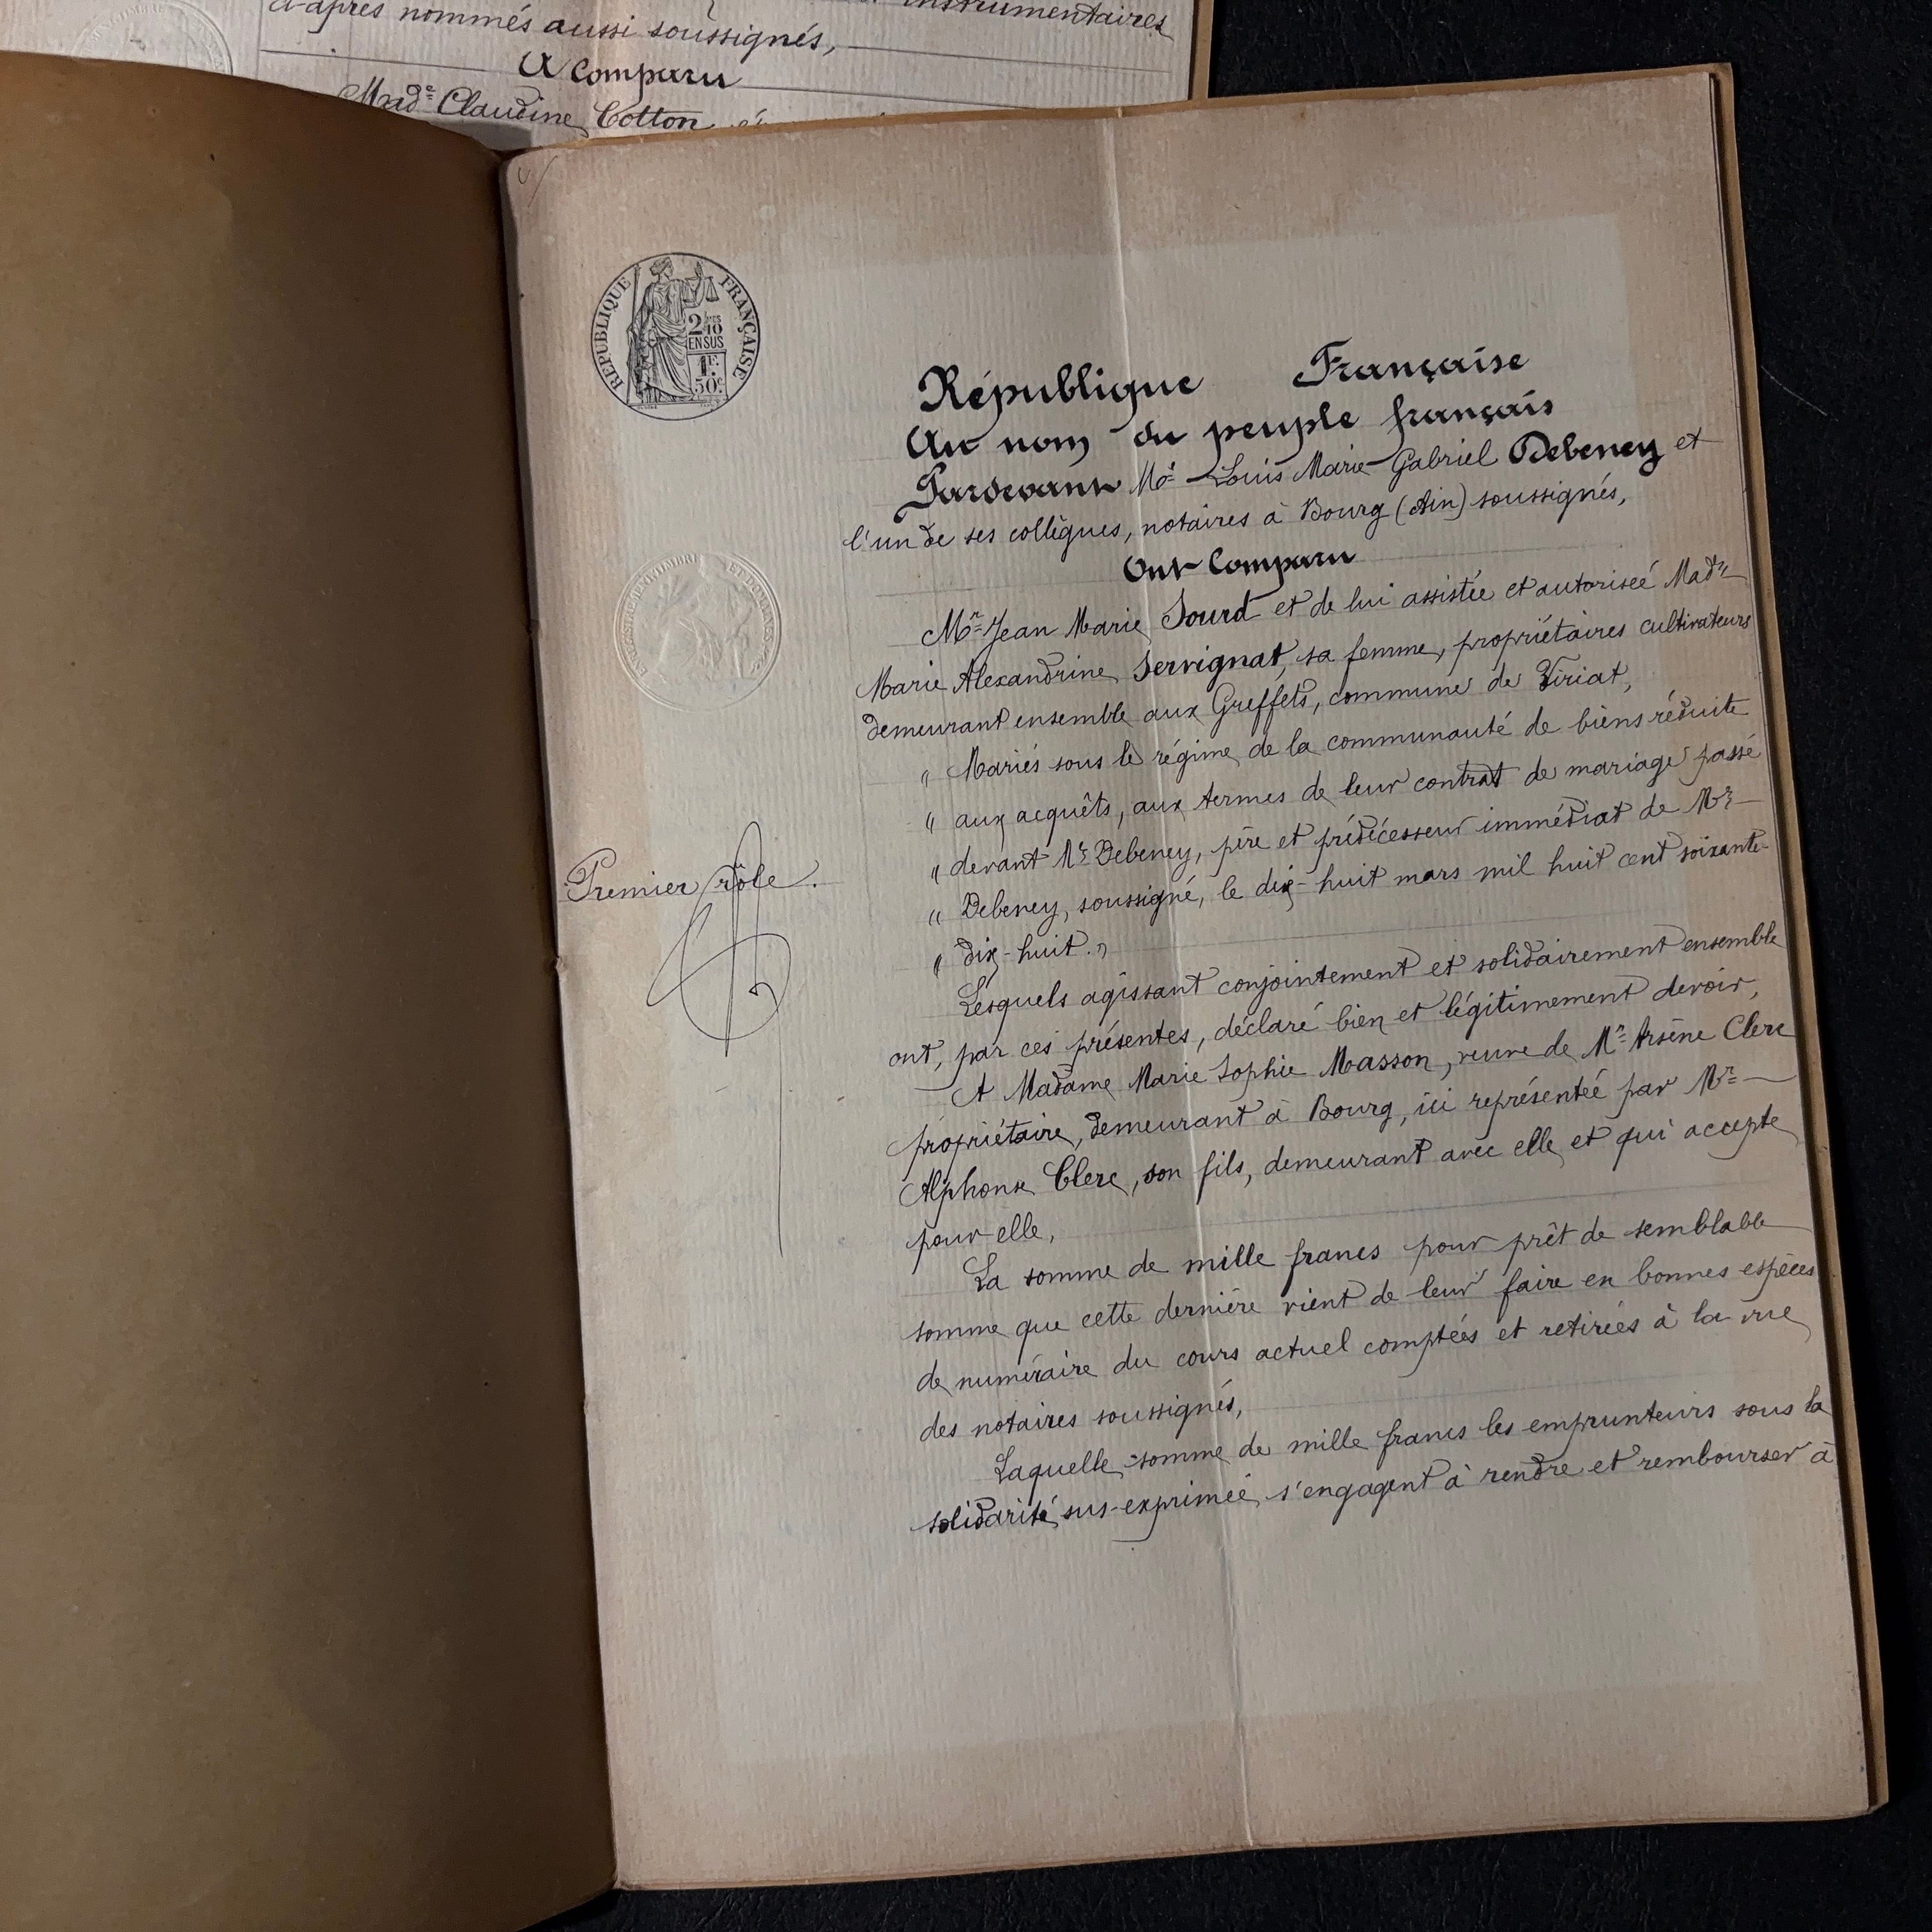 ci-après nommés aussi soussignés,
instrumentaires
A Comparu
Mad.e Claudine Cotton
RÉPUBLIQUE FRANÇAISE
2/10
EN SUS
1F.
50c.
République Française
Au nom du peuple français
Pardevant Me Louis Marie Gabriel Debeney et
l'un de ses collègues, notaires à Bourg (Ain) soussignés,
Ont Comparu
ENREGISTREMENT TIMBRE ET DOMAINES
Mr Jean Marie Sourd et de lui assistée et autorisée Made
Marie Alexandrine Servignat, sa femme, propriétaires cultivateurs
demeurant ensemble aux Greffets, commune de Viriat,
" Mariés sous le régime de la communauté de biens réduite
" aux acquêts, aux termes de leur contrat de mariage passé
" devant Me Debeney, père et prédécesseur immédiat de Me
" Debeney, soussigné, le dix-huit mars mil huit cent soixante-
" dix-huit."
Premier rôle.
Lesquels agissant conjointement et solidairement ensemble
ont, par ces présentes, déclaré bien et légitimement devoir,
A Madame Marie Sophie Masson, veuve de Mr Arsène Clerc
propriétaire, demeurant à Bourg, ici représentée par Mr
Alphonse Clerc, son fils, demeurant avec elle et qui accepte
pour elle,
La somme de mille francs pour prêt de semblable
somme que cette dernière vient de leur faire en bonnes espèces
de numéraire du cours actuel comptées et retirées à la vue
des notaires soussignés,
Laquelle somme de mille francs les emprunteurs sous la
solidarité sus-exprimée, s'engagent à rendre et rembourser à